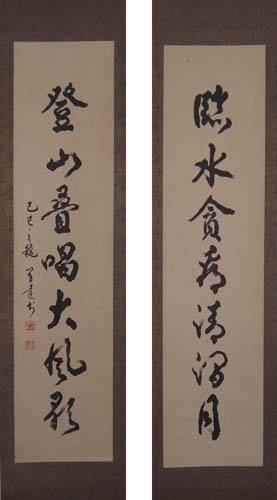 臨水貪看清月
登山疊唱大風歌
己巳之秋 書